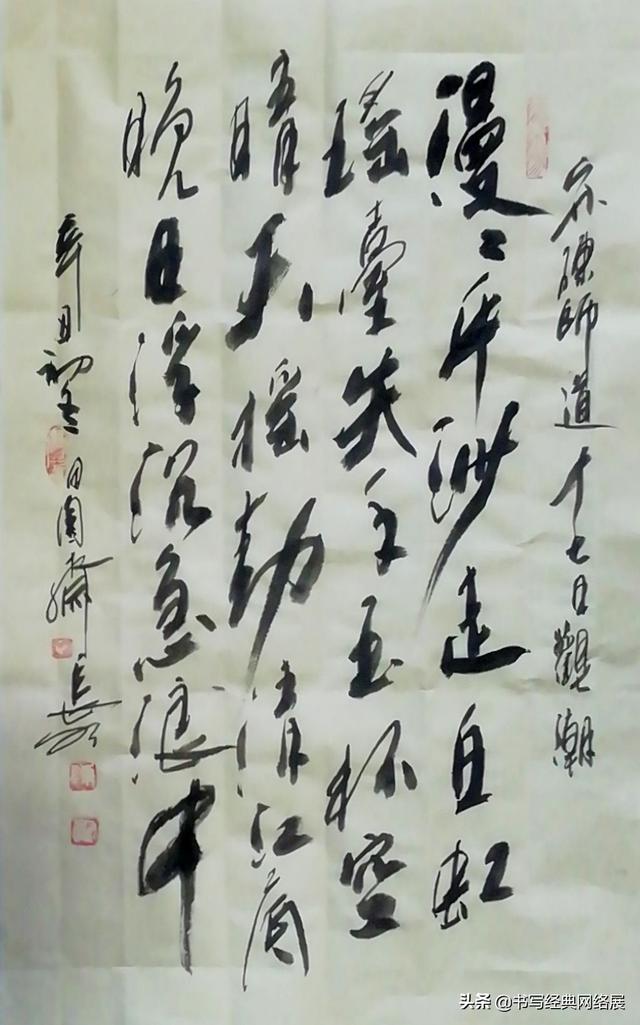 宋陳師道十七日觀潮
漫〻平沙走白虹
瑶臺失手玉杯空
晴天摇動清江底
晚日浮沉急浪中
辛丑初 田園齋
头条 @书写经典网络展